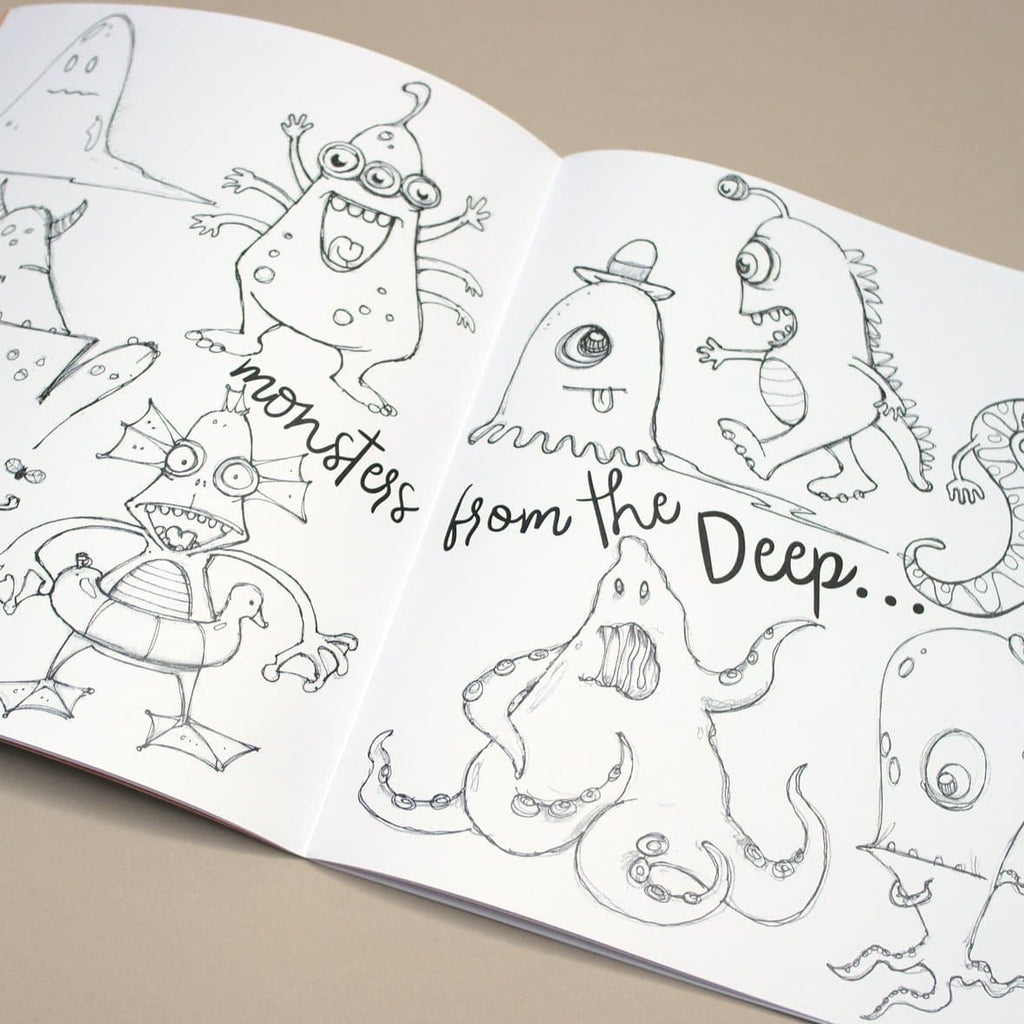 monsters from the Deep...